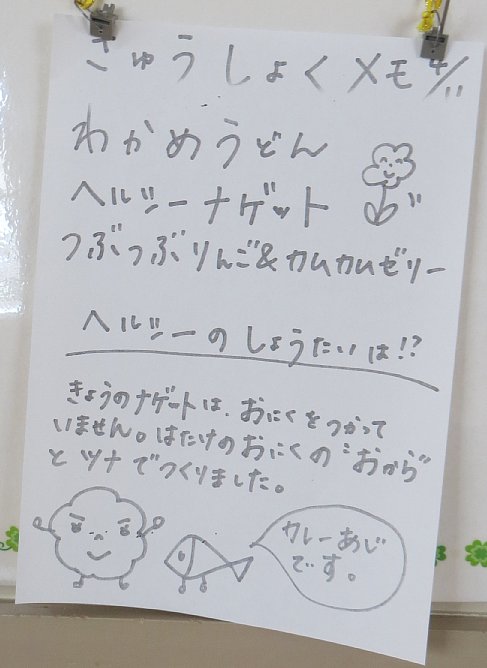 きゅうしょくメモ 4/11
わかめうどん
ヘルシーナゲット
つぶつぶりんご&カムカムゼリー
ヘルシーのしょうたいは!?
きょうのナゲートは、おにくをつかって
いません。はたけのおにくの"おから"
とツナでつくりました。
カレーあじ
です。